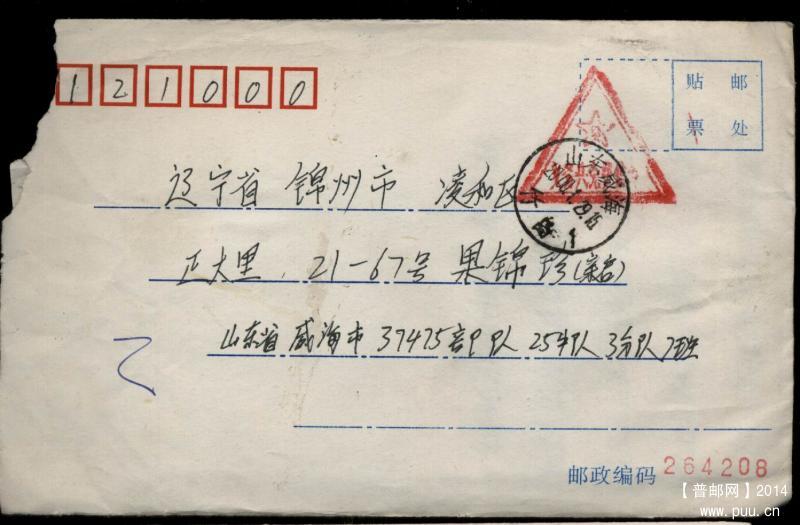 121000
贴 邮
票 处
辽宁省 锦州市 凌和区
正大里. 21-67号 果锦珍(亲启)
山东省 威海市 37475部队 25中队 3分队 7班
山东威海
邮政编码 264208
【普邮网】2014
www.puu.cn